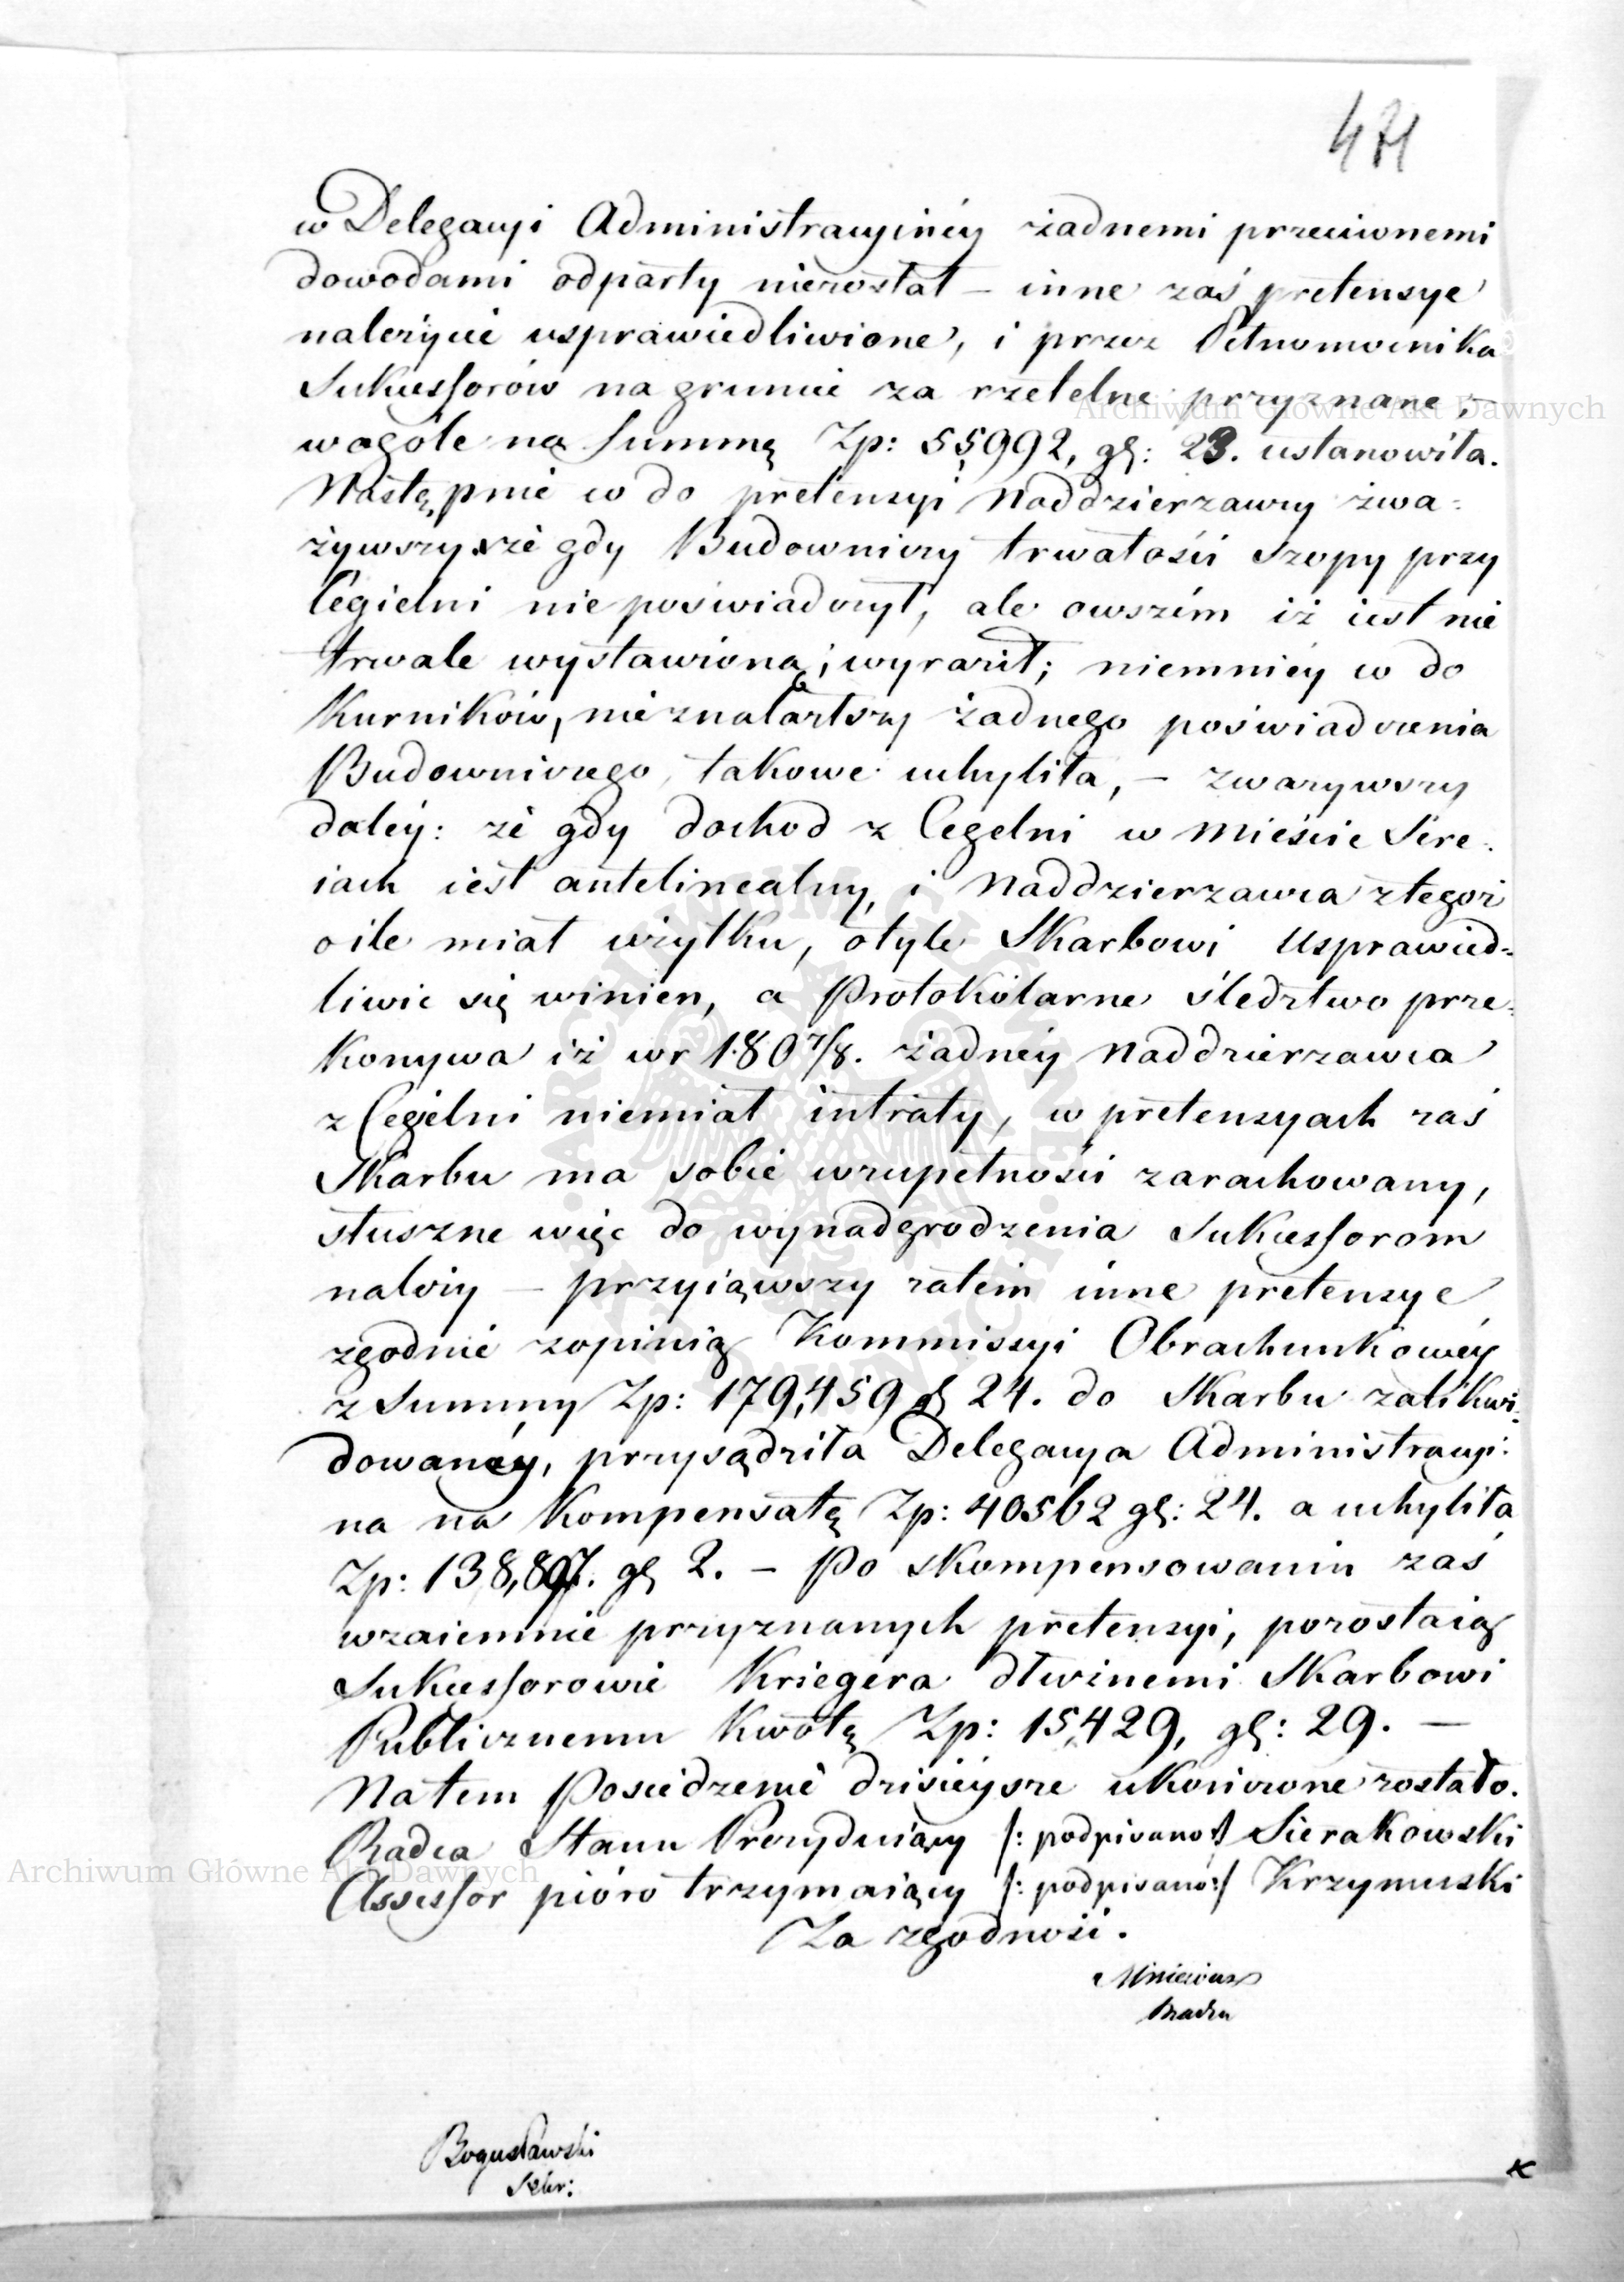 471
w Delegacyi Administracyinéy żadnemi przeciwnemi
dowodami odparty niezostał – inne zaś pretensye
należycie usprawiedliwione, i przez Pełnomocnika
Sukcessorów na gruncie za rzetelne przyznane, –
wogóle na Summę Zp: 55,992, gl: 23. ustanowiła.
Następnie co do pretensyi Naddzierzawcy zwa-
żywszy że gdy Budowniczy trwałości Szopy przy
Cegielni nie poświadczył, ale owszém iż iest nie
trwale wystawioną; wyraził; niemniéy co do
Kurników, nieznalazłszy żadnego poświadczenia
Budowniczego, takowe uchyliła, – zważywszy
daléy: że gdy dochod z Cegelni w Mieście Sere-
iach iest antelinealny, i Naddzierzawca z tegoż
oile miał użytku, otyle Skarbowi Usprawied=
liwić się winien, a Protokólarne śledztwo prze-
Konywa iż w r 1807/8. żadnéy Naddzierzawca
z Cegielni niemiał intraty, w pretensyach zaś
Skarbu ma sobie wzupełności zarachowany,
słuszne więc do wynadgrodzenia Sukcessorom
należy – przyiąwszy zatém inne pretensye
zgodnie zopinią Kommissyi Obrachunkowéy
z Summy Zp: 179,459 gl 24. do Skarbu zalikwi=
dowanéy, przysądziła Delegacya Administracyi-
na na Kompensatę Zp: 40562 gl: 24. a uchyliła
Zp: 138,897. gl 2. – Po skompensowaniu zaś
wzaiemnie przyznanych pretensyi, pozostaią
Sukcessorowie Kriegera dłużnemi Skarbowi
Publicznemu Kwotę Zp: 15,429, gl: 29. —
Na tem Posiedzenie dzisieysze ukończone zostało.
Radca Stanu Prezyduiący /: podpisano:/ Sierakowski
Assessor pióro trzymaiący /: podpisano:/ Krzymuski
Za zgodność.
Radca
Bogusławski
Sekr:
Archiwum Główne Akt Dawnych
Archiwum Główne Akt Dawnych